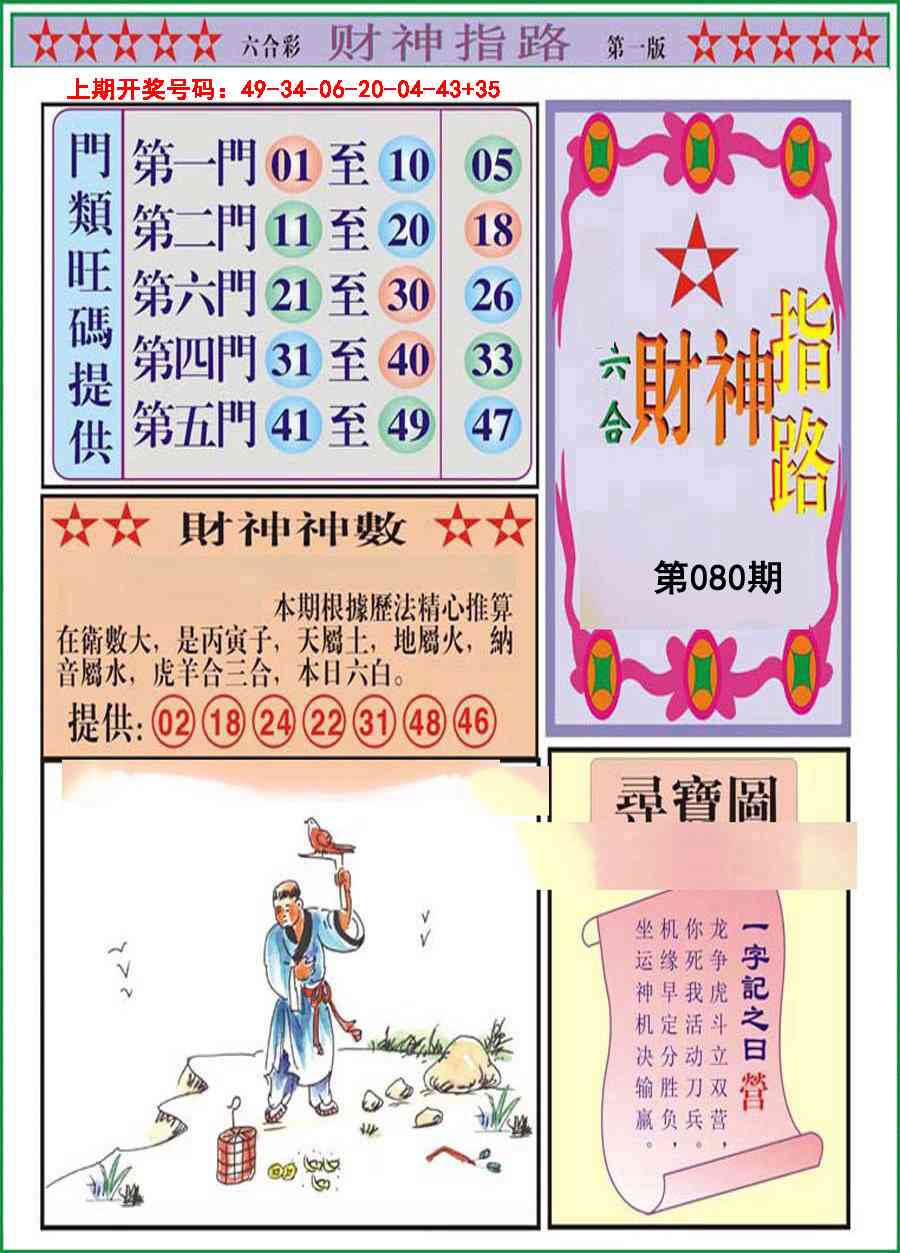 六合彩 财神指路 第一版
上期开奖号码：49-34-06-20-04-43+35
門類旺碼提供
第一門 01 至 10 05
第二門 11 至 20 18
第六門 21 至 30 26
第四門 31 至 40 33
第五門 41 至 49 47
六合 財神指路
第080期
財神神數
本期根據歷法精心推算
在衛數大，是丙寅子，天屬土，地屬火，納
音屬水，虎羊合三合，本日六白。
提供: 02 18 24 22 31 48 46
尋寶圖
一字記之曰 營
龙争虎斗立双营，
你死我活动刀兵。
机缘早定分胜负，
坐运神机决输赢。